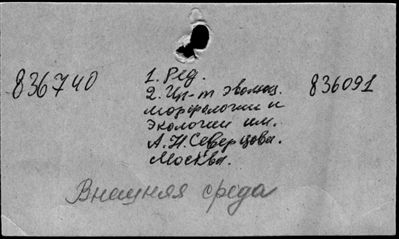 836740
1. Ред.
836091
2. Ин-т эволюц.
морфологии и
экологии им.
А.Н. Северцова.
Москва.
Внешняя среда